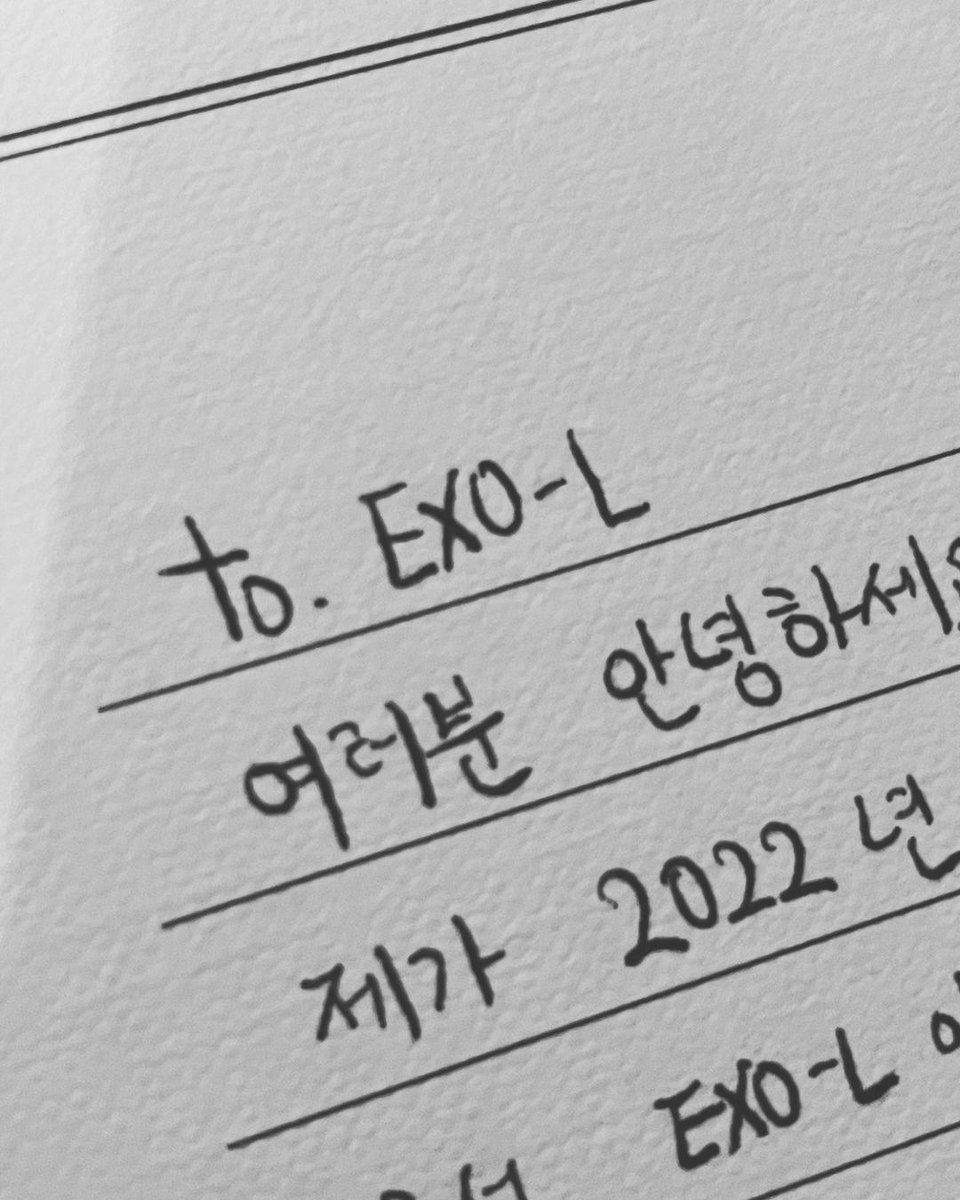 to. EXO-L
여러분 안녕하세요
제가 2022년
EXO-L